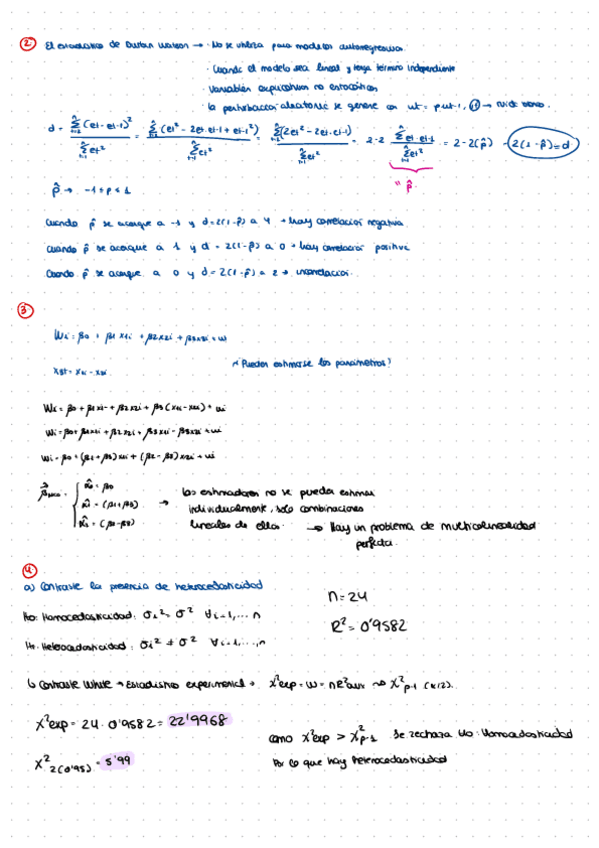 2 El estadístico de Durbin Watson → · No se utiliza para modelos autorregresivos
· Cuando el modelo sea lineal y tenga término independiente
· Variables explicativas no estocásticas
· La perturbación aleatoria se genere con ut = ρut-1, → ruido blanco.
d = Σ(et - et-1)² / Σet² = Σ(et² - 2et·et-1 + et-1²) / Σet² = Σ(2et² - 2et·et-1) / Σet² = 2-2 Σet·et-1 / Σet² = 2-2(ρ̂) 2(1-ρ̂)=d
" ρ̂
ρ̂ → -1 ≤ ρ ≤ 1
Cuando ρ̂ se acerque a -1 y d=2(1-ρ̂) a 4 → hay correlación negativa
Cuando ρ̂ se acerque a 1 y d = 2(1-ρ̂) a 0 → hay correlación positiva
Cuando ρ̂ se acerque a 0 y d=2(1-ρ̂) a 2 → incorrelación.
3
Wi = β0 + β1x1i + β2x2i + β3x3i + ui
x3t = x1i - x2i ¿Pueden estimarse los parámetros?
Wi = β0 + β1x1i + β2x2i + β3(x1i - x2i) + ui
Wi = β0 + β1x1i + β2x2i + β3x1i - β3x2i + ui
Wi = β0 + (β1+β3)x1i + (β2-β3)x2i + ui
= β0
= (β1+β3) → Los estimadores no se pueden estimar
individualmente, solo combinaciones
= (β2-β3) lineales de ellos. → Hay un problema de multicolinealidad
perfecta.
4
a) Contraste la presencia de heterocedasticidad
Ho: Homocedasticidad: σi² = σ² ∀i=1,...n
n = 24
H1: Heterocedasticidad: σi² ≠ σ² ∀i=1,...,n
R² = 0'9582
↳ Contraste White → Estadístico experimental → X²exp = w = nR²aux ~> X²p-1 (k=2).
X²exp = 24 · 0'9582 = 22'9968
como X²exp > X²p-1 Se rechaza Ho: Homocedasticidad
X²2(0'95) = 5'99
Por lo que hay heterocedasticidad